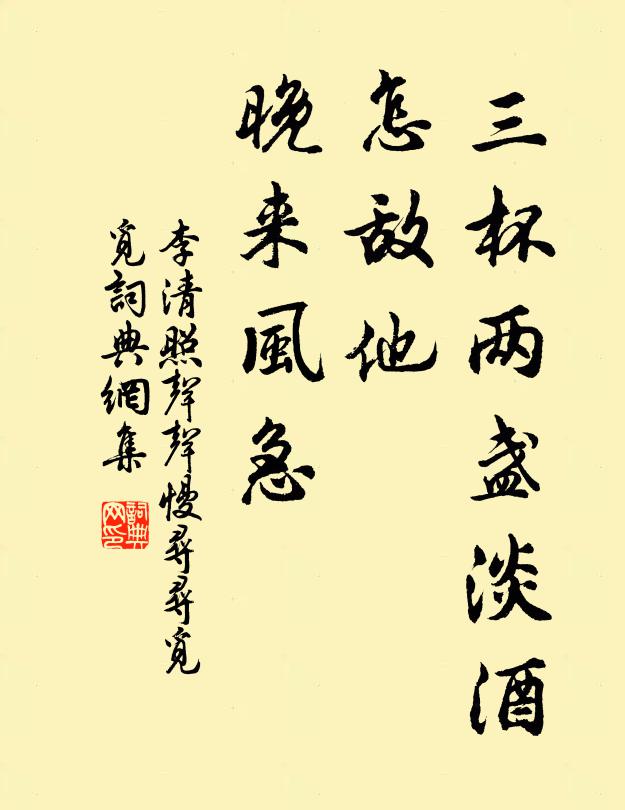 三杯两盏淡酒
怎敌他
晚来風急
李清照聲聲慢尋尋覓
覓詞典網集
詞典
网印